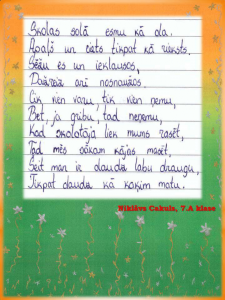 Skolas solā esmu kā da.
Apaļš un ciets tikpat kā rieksts.
Sēžu es un ieklausos,
Dažreiz arī nosnaužos.
Cik vien varu, tik vien ņemu,
Bet, ja gribu, tad neņemu,
Kad skolotāja liek mums rasēt,
Tad mēs sākam kājas mest,
Šeit man ir daudz labu draugu,
Tikpat daudz kā kaķim matu.
Niklāvs Cakuls, 7.A klase